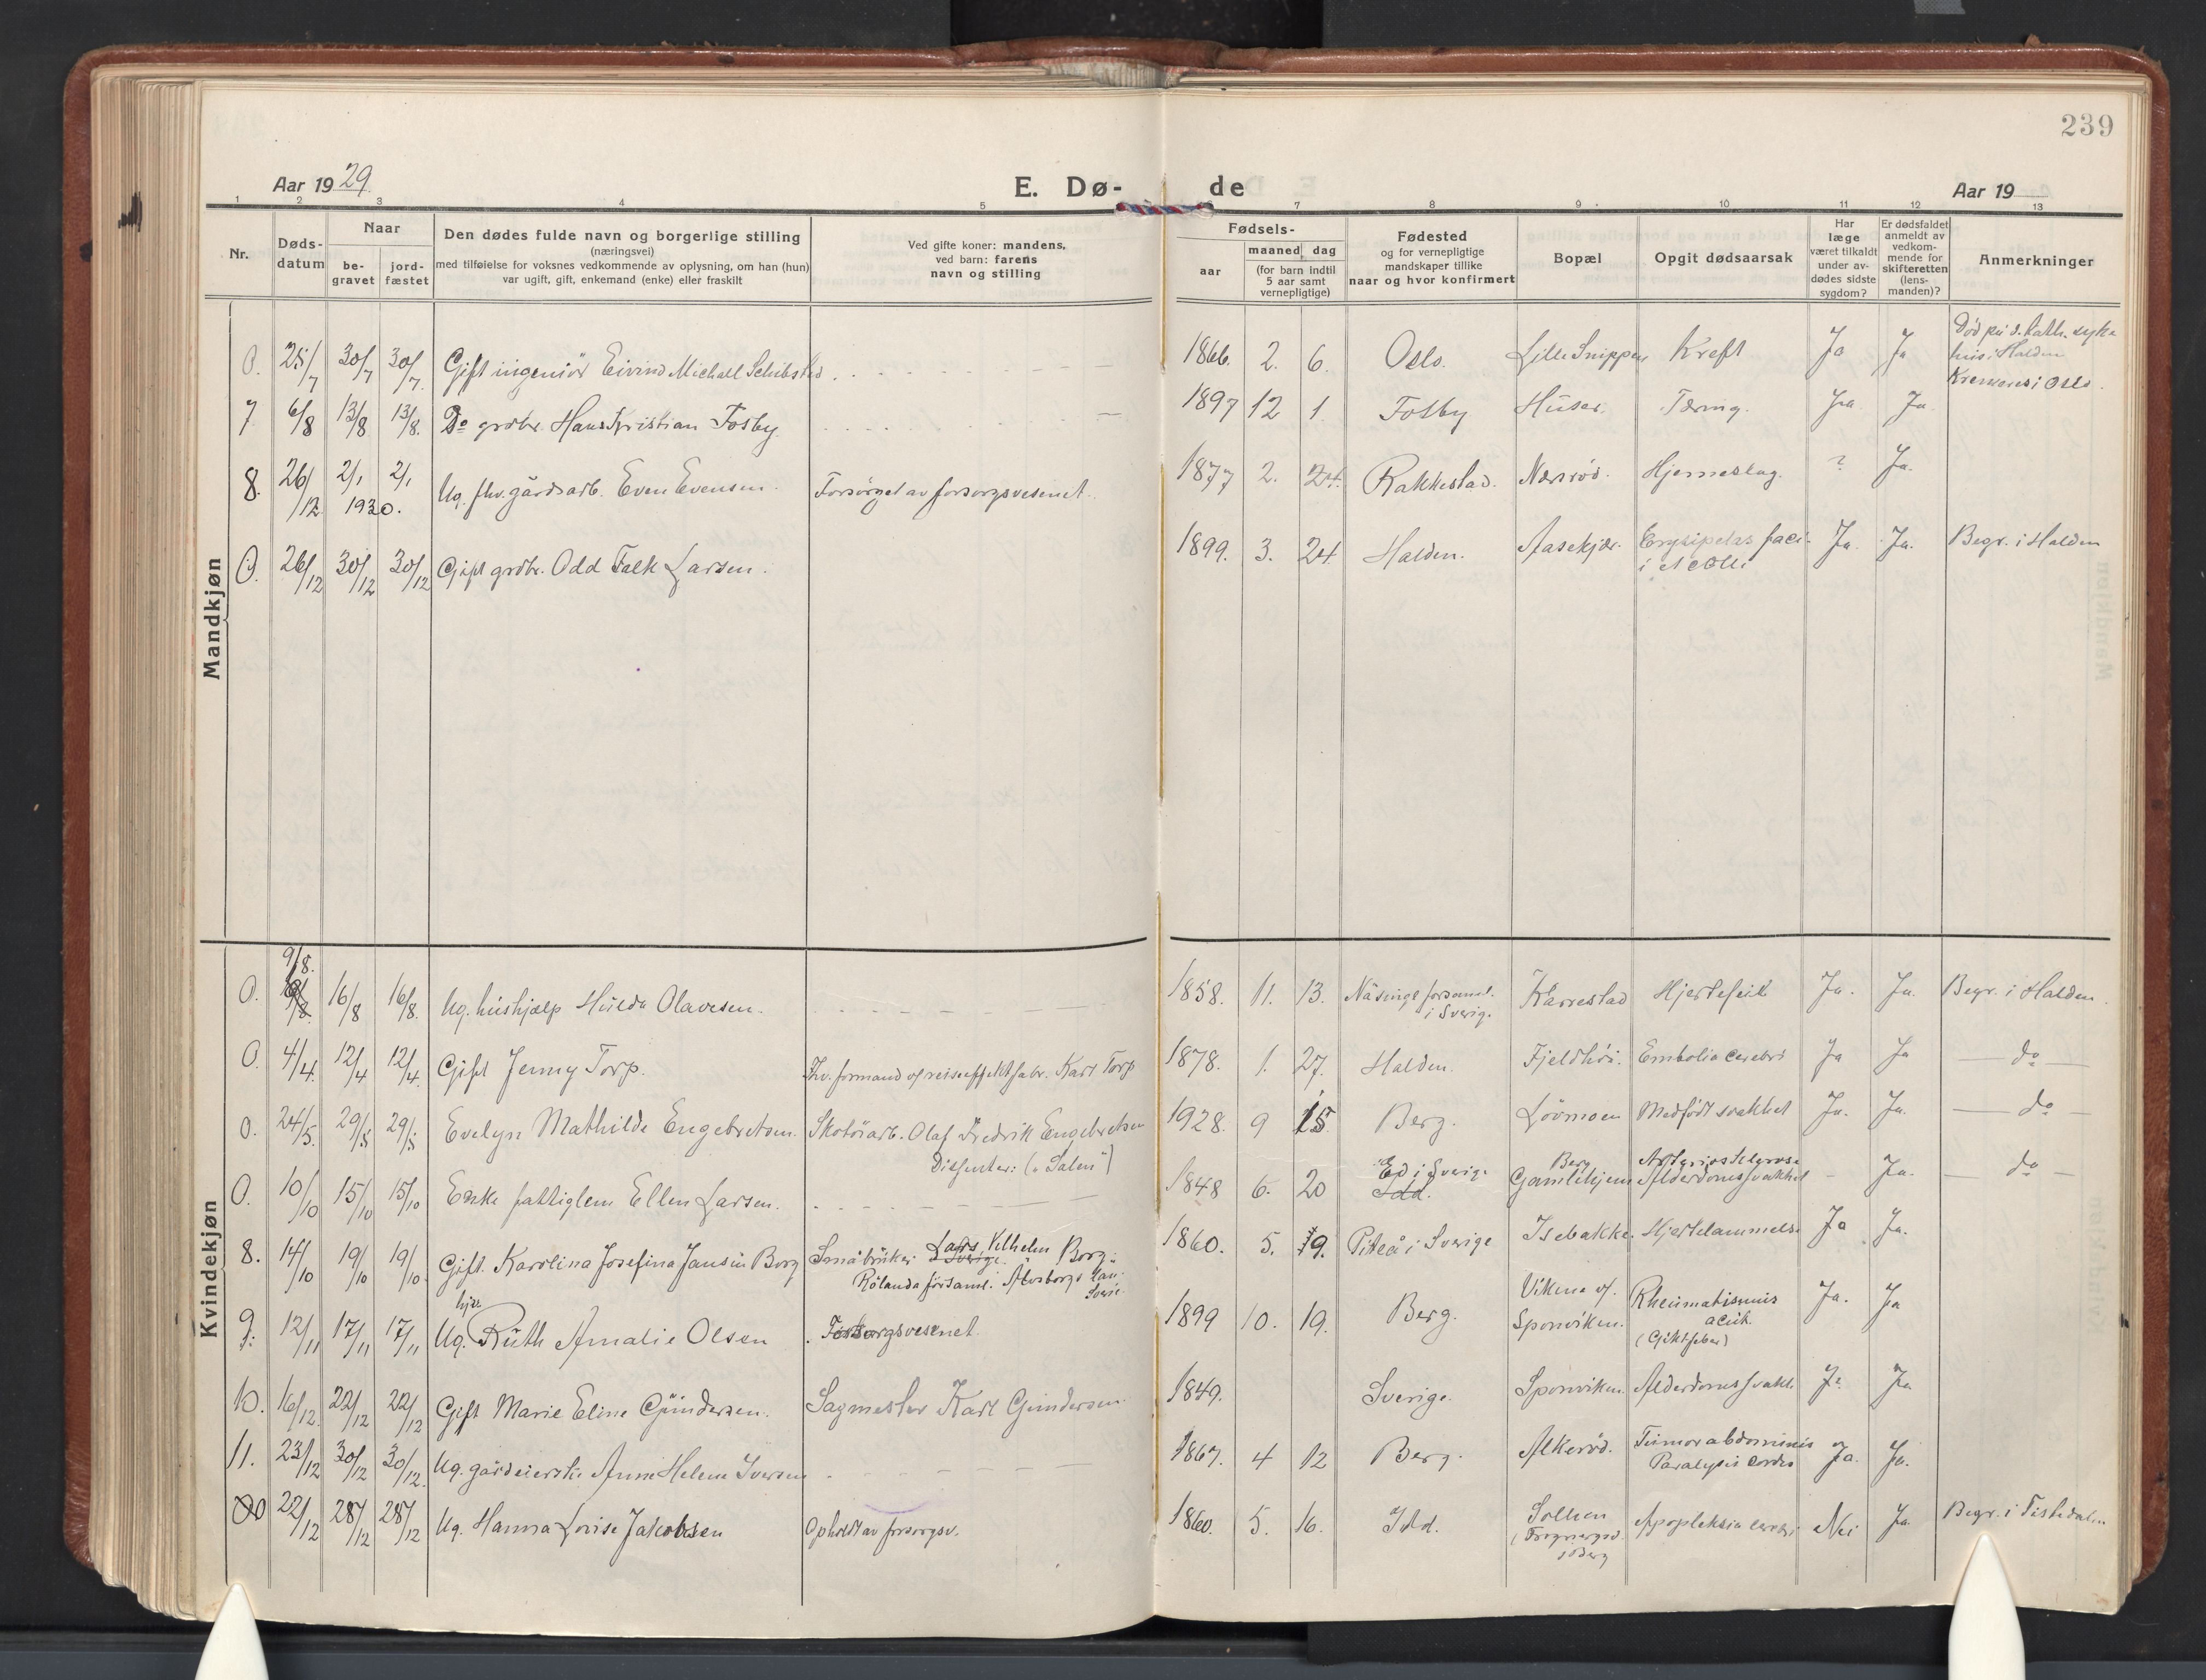 239
Aar 1929.
E. Dø-
de
Aar 19
1 2 3 4 5 6 7 8 9 10 11 12 13
Nr.
Døds-
datum
Naar
be-
gravet
jord-
fæstet
Den dødes fulde navn og borgerlige stilling
(næringsvei)
med tilføielse for voksnes vedkommende av oplysning, om han (hun)
var ugift, gift, enkemand (enke) eller fraskilt
Ved gifte koner: mandens,
ved barn: farens
navn og stilling
Fødsels-
aar
maaned dag
(for barn indtil
5 aar samt
vernepligtige)
Fødested
og for vernepligtige
mandskaper tillike
naar og hvor konfirmert
Bopæl
Opgit dødsaarsak
Har
læge
været tilkaldt
under av-
dødes sidste
sygdom?
Er dødsfaldet
anmeldt av
vedkom-
mende for
skifteretten
(lens-
manden)?
Anmerkninger
Mandkjøn
0. 25/7 30/7 30/7. Gift ingeniör Eivind Michael Schibsted. 1866. 2. 6. Oslo. Lille Snippen Kreft Ja Ja Död på s. Kath. syke
hus i Halden
Kremeres i Oslo.
7 6/8 13/8 13/8. Do grdbr. Hans Kristian Fosby 1897 12 1. Fosby Huser. Tæring. Ja Ja
8. 26/12 2/1 2/1 1930. Ug. fhv. gårdsarb. Even Evensen. Forsörget av forsorgsvesenet. 1877 2. 24. Rakkestad. Nærsöd. Hjerneslag. ? Ja.
0. 26/12 30/12 30/12 Gift grdbr. Odd Falk Larsen. 1899. 3. 24. Halden. Aasekjær. Erysipelas faci-
i et Colli
Ja. Ja. Begr. i Halden
Kvindekjøn
0. 9/8. 16/8 16/8. Ug. hushjælp Hulda Olavesen. 1858. 11. 13. Näsinge forsaml.
i Sverige
Karrestad Hjertefeil Ja. Ja. Begr. i Halden.
0. 4/4. 12/4 12/4. Gift Jenny Torp. Fhv. formand v/ reiseeffektfabr. Karl Torp 1878. 1. 27. Halden. Fjeldhöi. Embolia cerebri Ja Ja — do —
0. 24/5. 29/5 29/5 Evelyn Mathilde Engebretsen. Skotöiarb. Olaf Fredrik Engebretsen
Dissenter: („Salen")
1928. 9 15. Berg. Lövmoen Medfödt svakhet Ja. Ja. — do —
0. 10/10 15/10 15/10 Enke fattiglem Ellen Larsen. 1848 6. 20 Ed i Sverige
Idd.
Berg
Gamlehjem
Arteriosklerose
Alderdomssvakhet
Ja. — do —
8. 14/10 19/10 19/10 Gift. Karolina Josefina Jansin Borg Småbruker Lars Vilhelm Borg.
Sverige.
Rölanda församl. Älvsborgs län.
Sverie
1860. 5. 19. Piteå i Sverige Isebakke. Hjertelammelse Ja Ja.
hjsr.
9. 12/11 17/11 17/11 Ug. Ruth Amalie Olsen Forsorgsvesenet. 1899 10. 19. Berg. Vikene v/.
Sponviken.
Rheumatismus
acut.
(Giktfeber)
Ja. Ja
10. 16/12. 22/12 22/12 Gift Marie Eline Gundersen. Sagmester Karl Gundersen 1849. Sverige. Sponviken. Alderdomssvakh. Ja Ja
11. 23/12 30/12 30/12. Ug. gårdeierske Anne Helene Iversen 1867. 4 12 Berg. Alkeröd. Tumor abdominis
Paralysis cordis
Ja. Ja.
0 22/12 28/12 28/12 Ug. Hanna Lovise Jakobsen Opholdt av forsorgsv. 1860. 5. 16. Idd. Solheim
i Berg
Apopleksia cerebri Nei Ja Begr. i Tistedalen